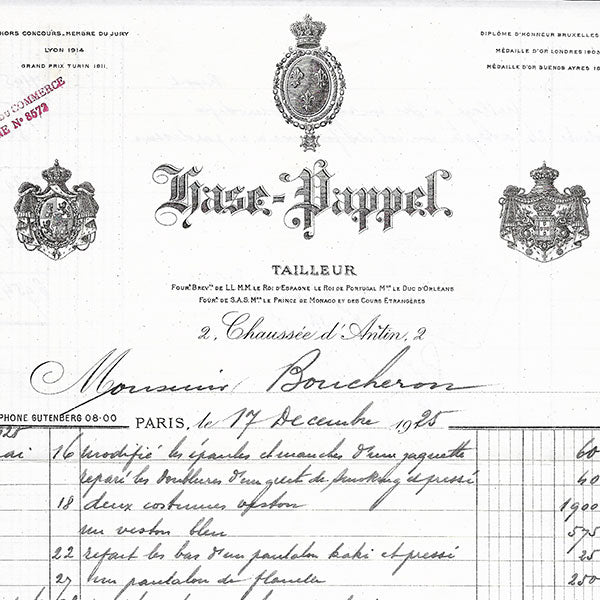 HORS CONCOURS, MEMBRE DU JURY
LYON 1914
GRAND PRIX TURIN 1911.
DIPLÔME D'HONNEUR BRUXELLES
MÉDAILLE D'OR LONDRES 1903
MÉDAILLE D'OR BUENOS AYRES 18
DU COMMERCE
RE Nº 8572
Hase-Pappel
TAILLEUR
FOURR BREVTÉ DE LL.M.M. LE ROI D'ESPAGNE LE ROI DE PORTUGAL MGR LE DUC D'ORLÉANS
FOURR DE S.A.S. MGR LE PRINCE DE MONACO ET DES COURS ÉTRANGÈRES
2, Chaussée d'Antin, 2
Monsieur Boucheron
PHONE GUTENBERG 08-00
PARIS, le 17 Decembre 1925
1925
mai 16 modifié les épaules et manches d'une jaquette 60
reparé les doublures d'un gilet de smoking et pressé 40
18 deux costumes veston 1900
un veston bleu 575
22 refait les bas d'un pantalon kaki et pressé 25
27 un pantalon de flanelle 250